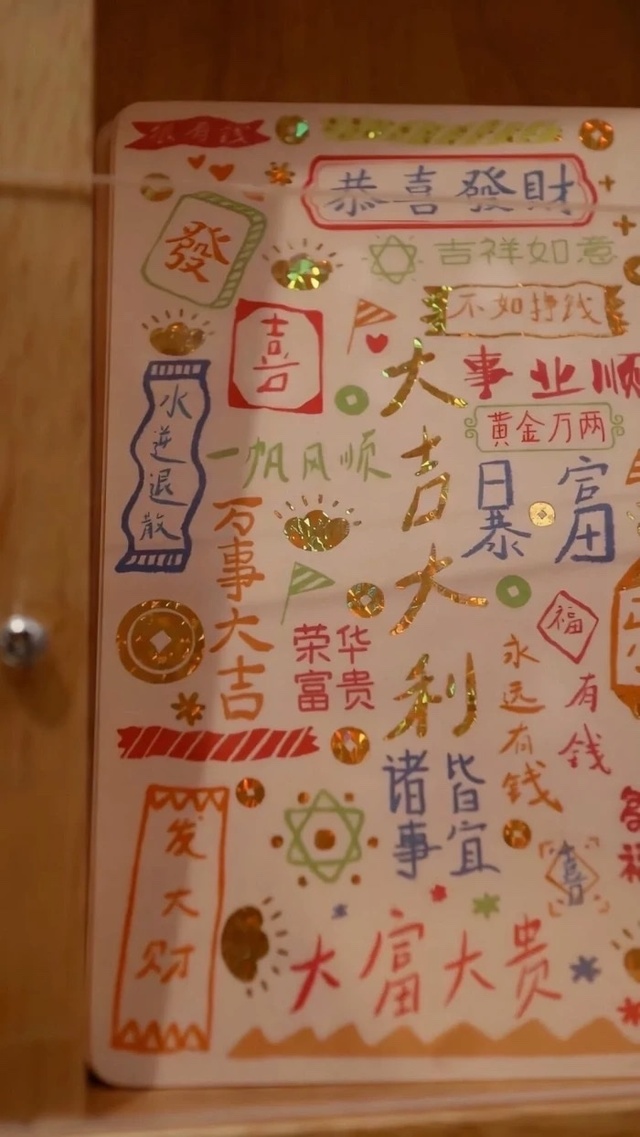 很有钱
恭喜發財
發
吉祥如意
不如挣钱
喜
大吉大利
事业顺
黄金万两
水逆退散
一帆风顺
日暴
富
万事大吉
福
荣华
富贵
永远有钱
有钱
诸事
皆宜
发大财
喜
大富大贵